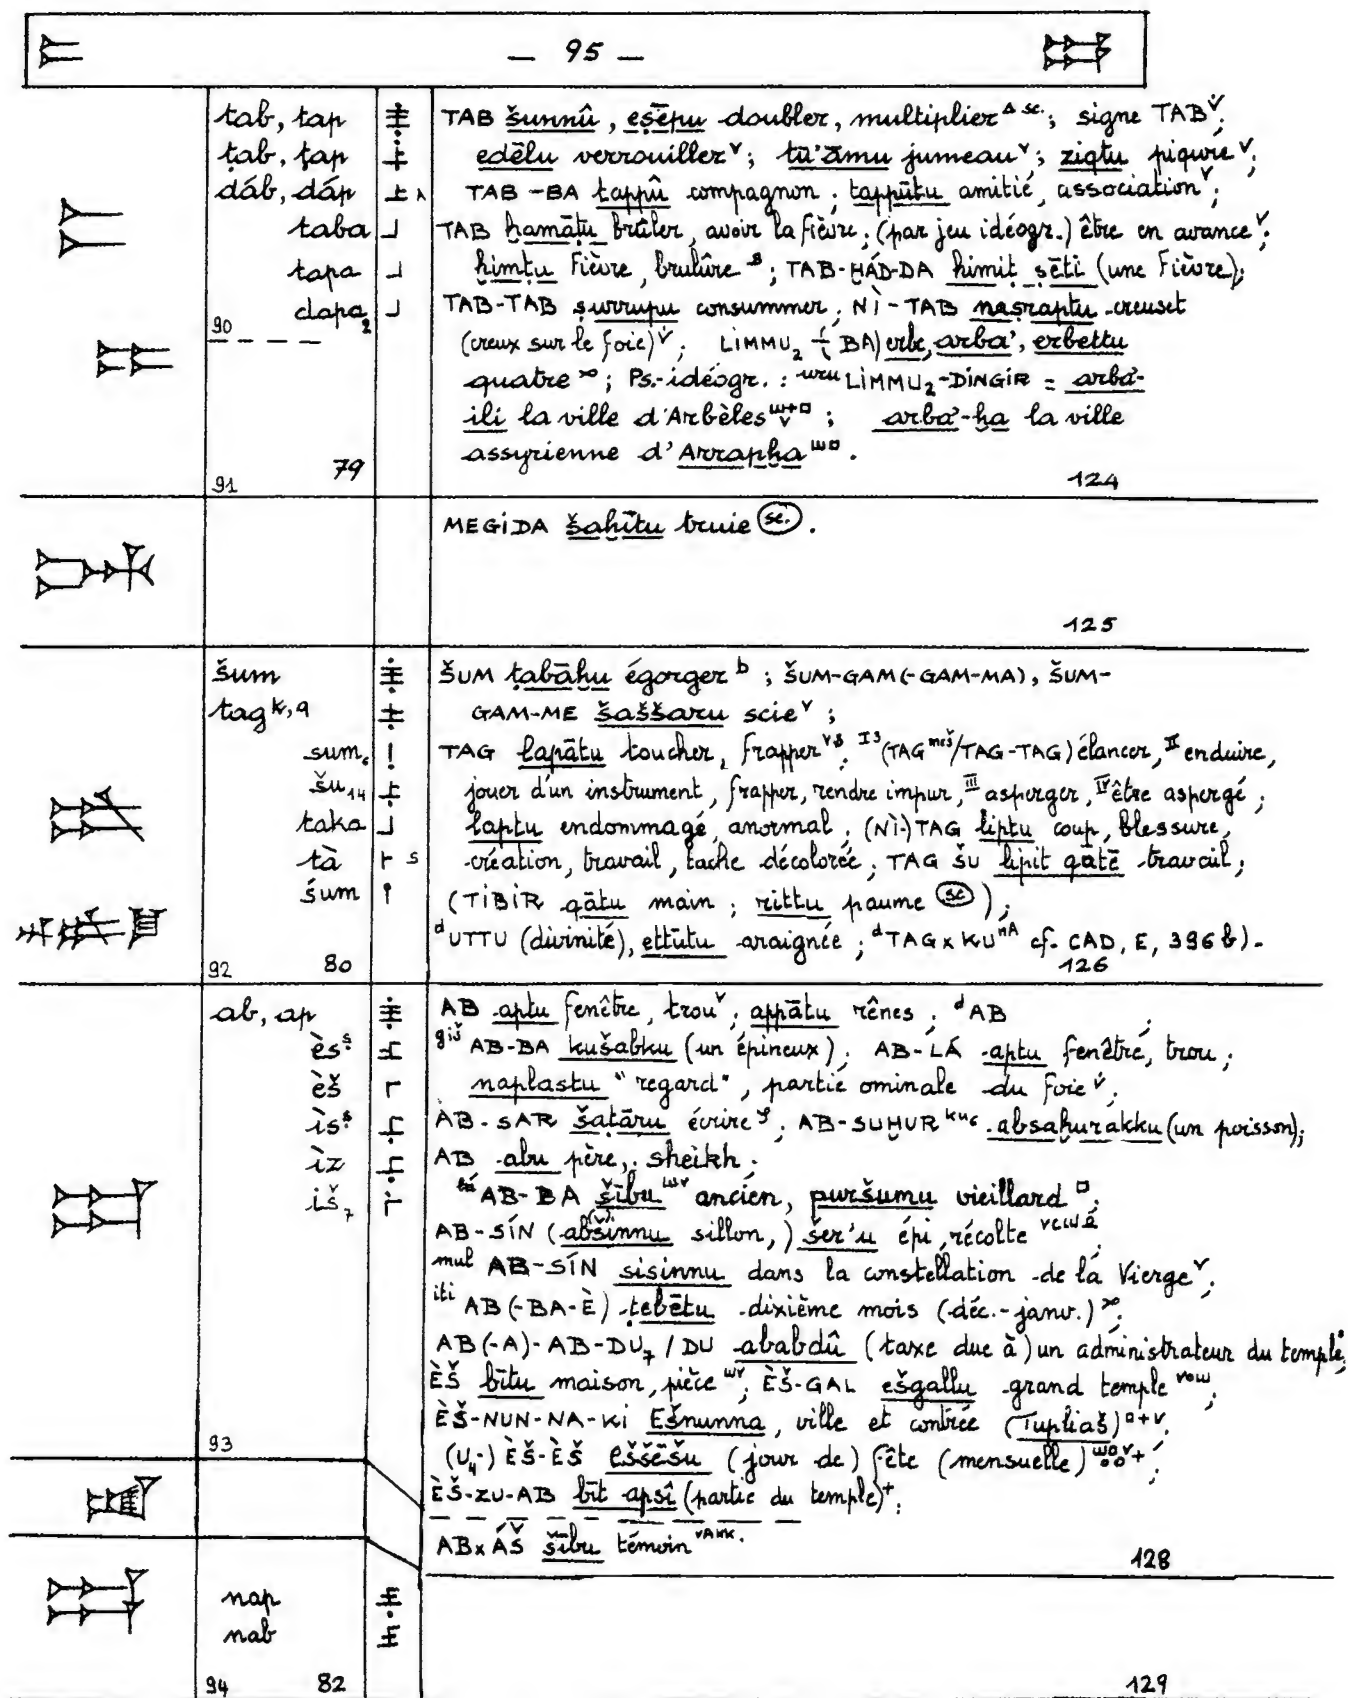 — 95 —
tab, tap TAB šunnû, eṣēpu doubler, multiplier ; signe TAB ;
ṭab, ṭap edēlu verrouiller ; tū'āmu jumeau ; ziqtu piqure ;
dáb, dáp TAB-BA tappû compagnon ; tappūtu amitié, association ;
taba TAB ḫamāṭu brûler, avoir la fièvre ; (par jeu idéogr.) être en avance ;
tapa ḫimṭu fièvre, brulûre ; TAB-ḪÁD-DA ḫimiṭ ṣēti (une fièvre) ;
dapa₂ TAB-TAB ṣurrupu consummer ; NÌ-TAB naṣraptu creuset
90 (creux sur le foie) ; LIMMU₂ (BA) erbe, arba', erbettu
quatre ; Ps.-idéogr. : uru LIMMU₂-DINGIR = arba-
ili la ville d'Arbèles ; arba'-ḫa la ville
assyrienne d'Arrapḫa .
91 79 124
MEGIDA šaḫītu truie sc. .
125
šum ŠUM ṭabāḫu égorger b ; ŠUM-GAM(-GAM-MA), ŠUM-
tag k, q GAM-ME šaššaru scie ;
sum₆ TAG lapātu toucher, frapper ; I3 (TAG meš/TAG-TAG) élancer, II enduire,
šu₁₄ jouer d'un instrument, frapper, rendre impur, III asperger, IV être aspergé ;
taka laptu endommagé, anormal ; (NÌ-)TAG liptu coup, blessure,
tà création, travail, tache décolorée ; TAG ŠU lipit qātē travail ;
śum (TIBIR qātu main ; rittu paume sc) ;
d UTTU (divinité), ettūtu araignée ; d TAG x KU nA cf. CAD, E, 396 b) -
92 80 126
ab, ap AB aptu fenêtre, trou ; appātu rênes ; d AB ;
ès giš AB-BA kušabku (un épineux) ; AB-LÁ aptu fenêtre, trou ;
èš naplastu "regard", partie ominale du foie ;
ìs AB-SAR šaṭāru écrire ; AB-SUḪUR ku₆ absaḫurakku (un poisson) ;
ìz AB abu père, sheikh ;
iš₇ lú AB-BA šību ancien, puršumu vieillard ;
AB-SÍN (absinnu sillon,) šer'u épi, récolte
mul AB-SÍN sisinnu dans la constellation de la Vierge ;
iti AB(-BA-È) ṭebētu dixième mois (déc.-janv.) ;
AB(-A)-AB-DU₇ / DU ababdû (taxe due à) un administrateur du temple ;
ÈŠ bītu maison, pièce ; ÈŠ-GAL ešgallu grand temple ;
ÈŠ-NUN-NA-KI Ešnunna, ville et contrée (Tupliaš) ;
93 (U₄-) ÈŠ-ÈŠ eššēšu (jour de) fête (mensuelle) ;
ÈŠ-ZU-AB bīt apsî (partie du temple) ;
ABxÁŠ šību témoin .
128
nap
nab
94 82 129